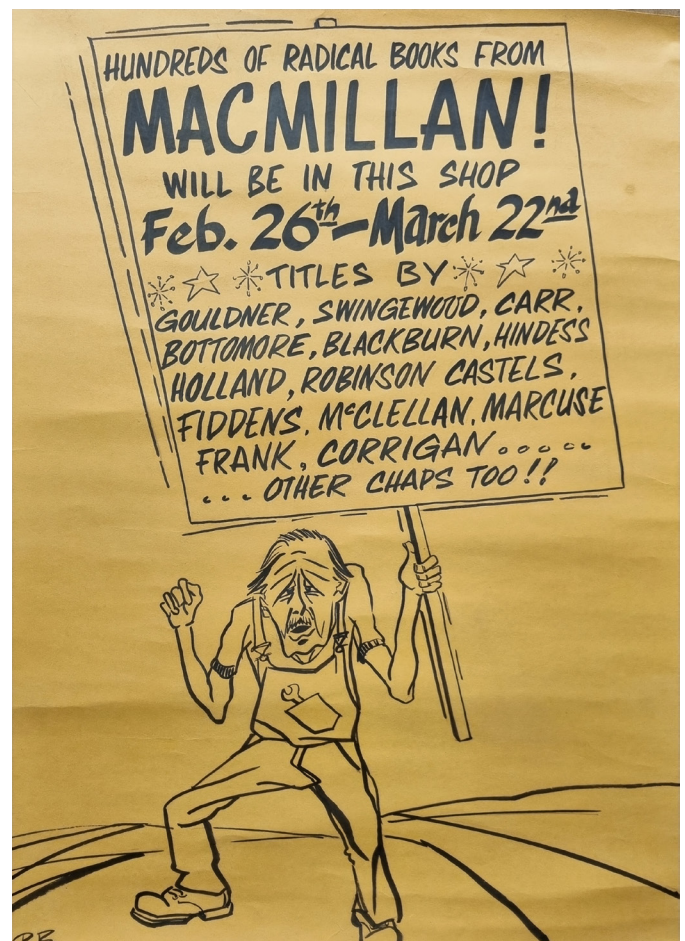 HUNDREDS OF RADICAL BOOKS FROM
MACMILLAN!
WILL BE IN THIS SHOP
Feb. 26th-March 22nd
TITLES BY
GOULDNER, SWINGEWOOD, CARR,
BOTTOMORE, BLACKBURN, HINDESS
HOLLAND, ROBINSON CASTELS,
FIDDENS, McCLELLAN, MARCUSE
FRANK, CORRIGAN.....
...OTHER CHAPS TOO!!